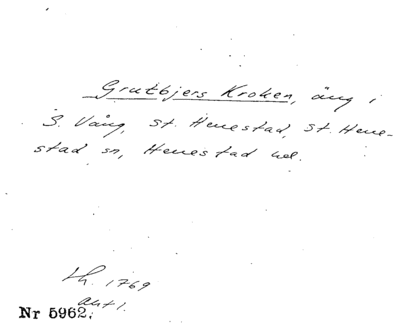 Grutbjers Kroken, äng i
S. Vång, St. Herrestad, St. Herre-
stad sn, Herrestad hd.
Lh. 1769
akt 1.
Nr 5962.